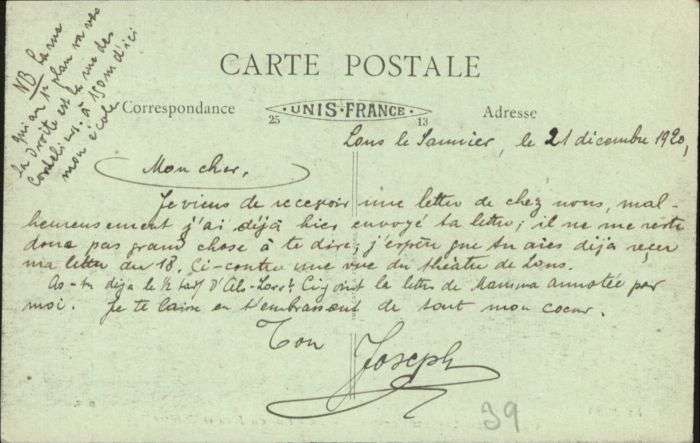 NB la rue
qui au 1er plan va vers
la Droite est la rue des
Cordeliers. à 150 m d'ici
mon école
CARTE POSTALE
Correspondance
UNIS-FRANCE
25
13
Adresse
Lons le Saunier, le 21 décembre 1920,
Mon cher,
Je viens de recevoir une lettre de chez nous, mal-
heureusement j'ai déjà hier envoyé ta lettre; il ne me reste
donc pas grand chose à te dire; j'espère que tu aies déjà reçu
ma lettre du 18. Ci-contre une vue du théâtre de Lons.
As-tu déjà le ½ tarif d'Als-Lorr? Ci joint la lettre de Mamma annotée par
moi. Je te laisse en t'embrassant de tout mon coeur.
Ton Joseph
39